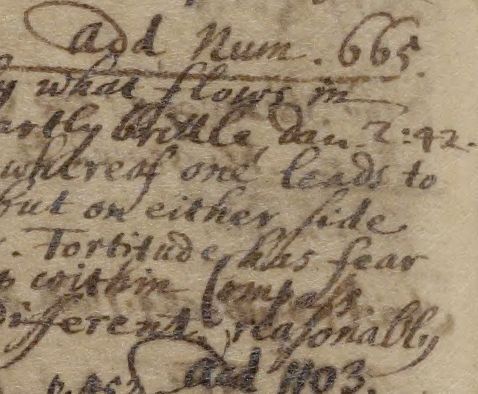 add Num. 665.
y what flows in
artly brittle, dan 2:42.
whereof one leads to
but on either side
. Fortitude has fear
within Compass.
different. reasonably
Ad 1103.